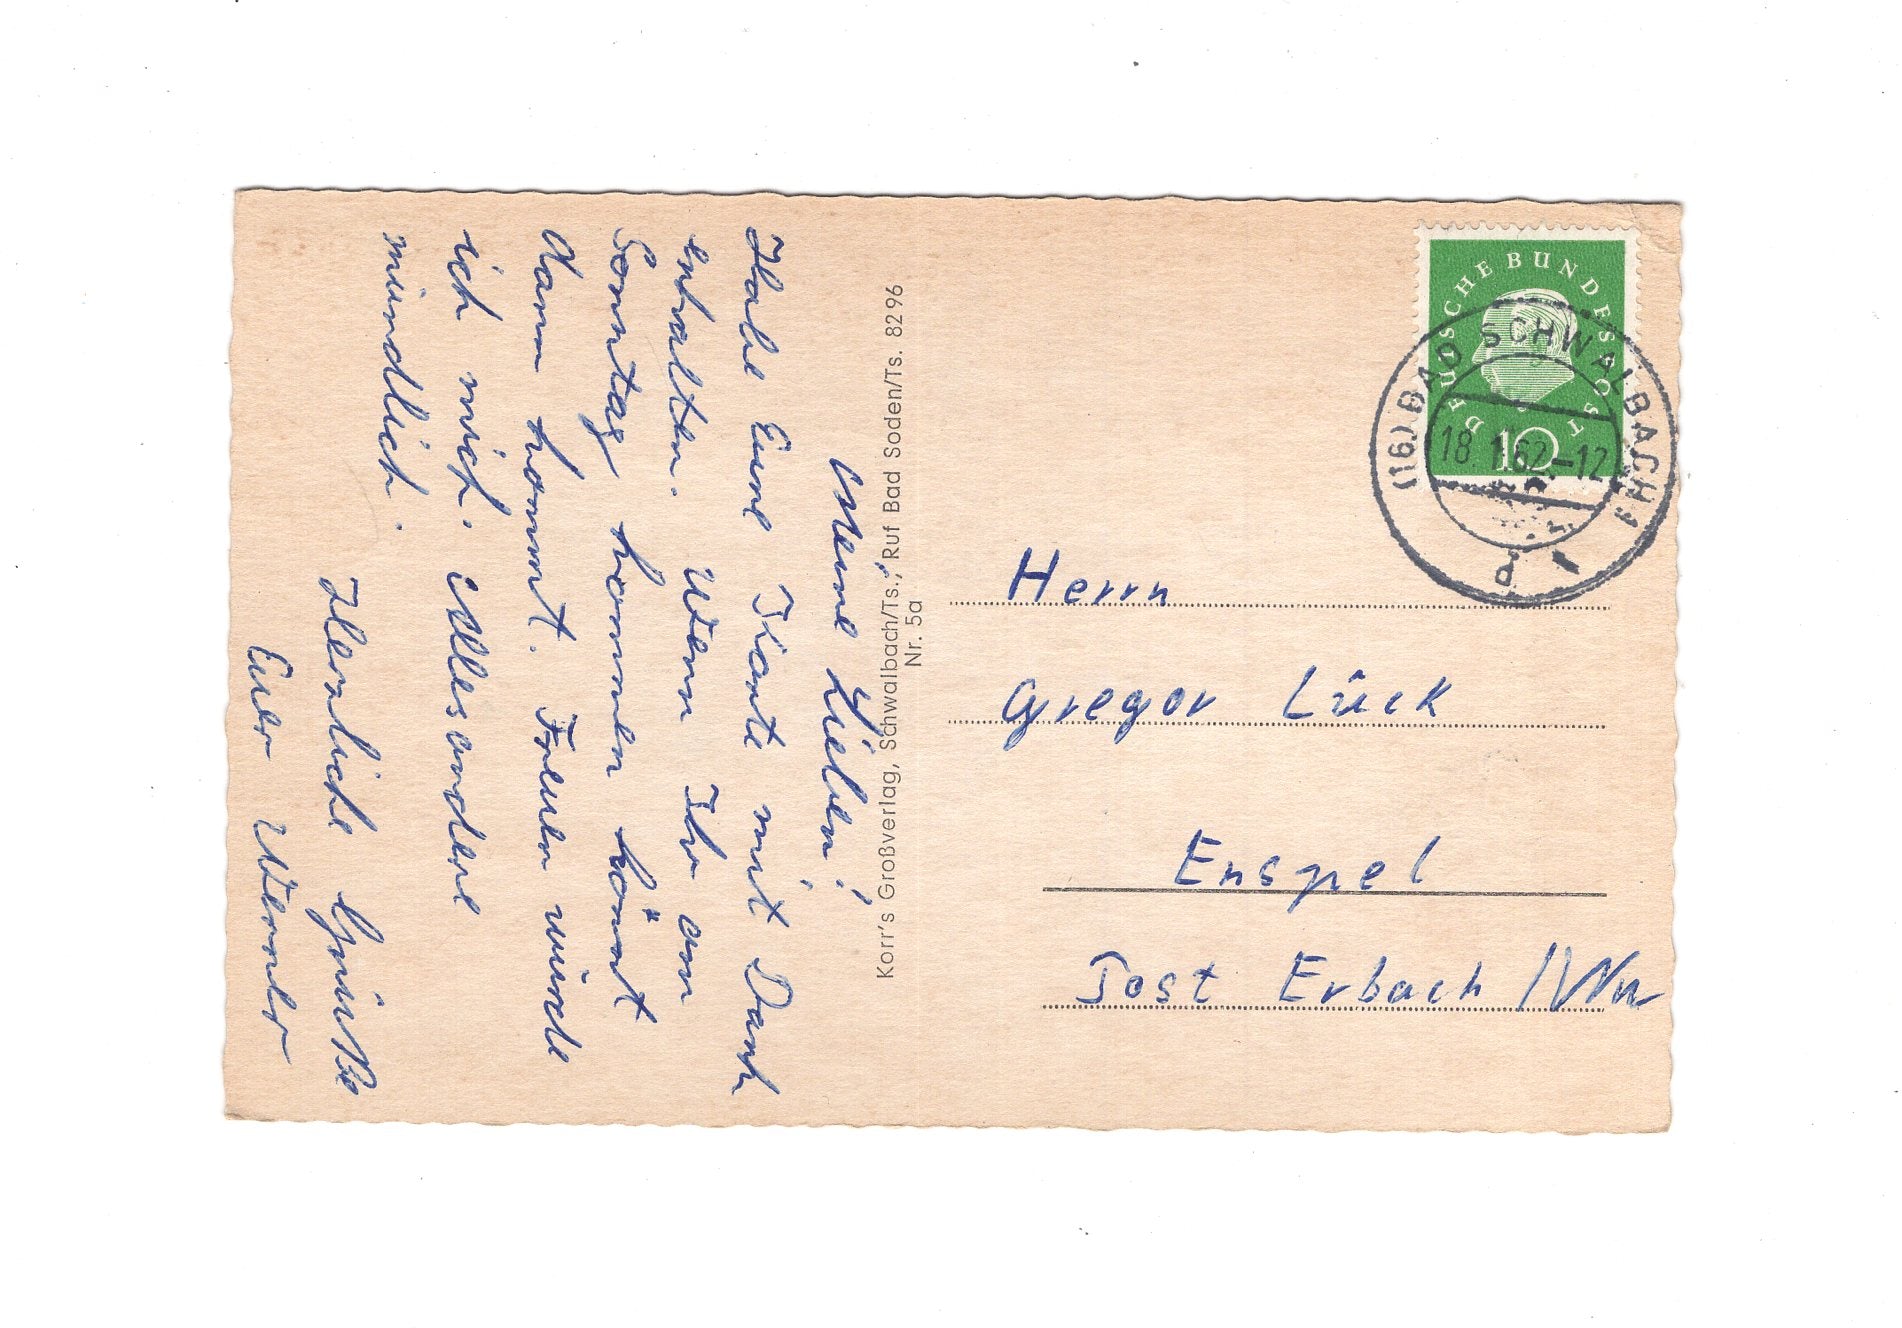 Meine Lieben!
Habe Eure Karte mit Dank
erhalten. Wenn Ihr am
Sonntag kommen könnt
dann kommt. Freuen würde
ich mich. Alles andere
mündlich.
Herzliche Grüße
Euer Werner
Korr's Großverlag, Schwalbach/Ts., Ruf Bad Soden/Ts. 8296
Nr. 5a
DEUTSCHE BUNDESPOST
10
(16) BAD SCHWALBACH 1
18.1.62-12
d
Herrn
Gregor Lück
Enspel
Post Erbach /Ww